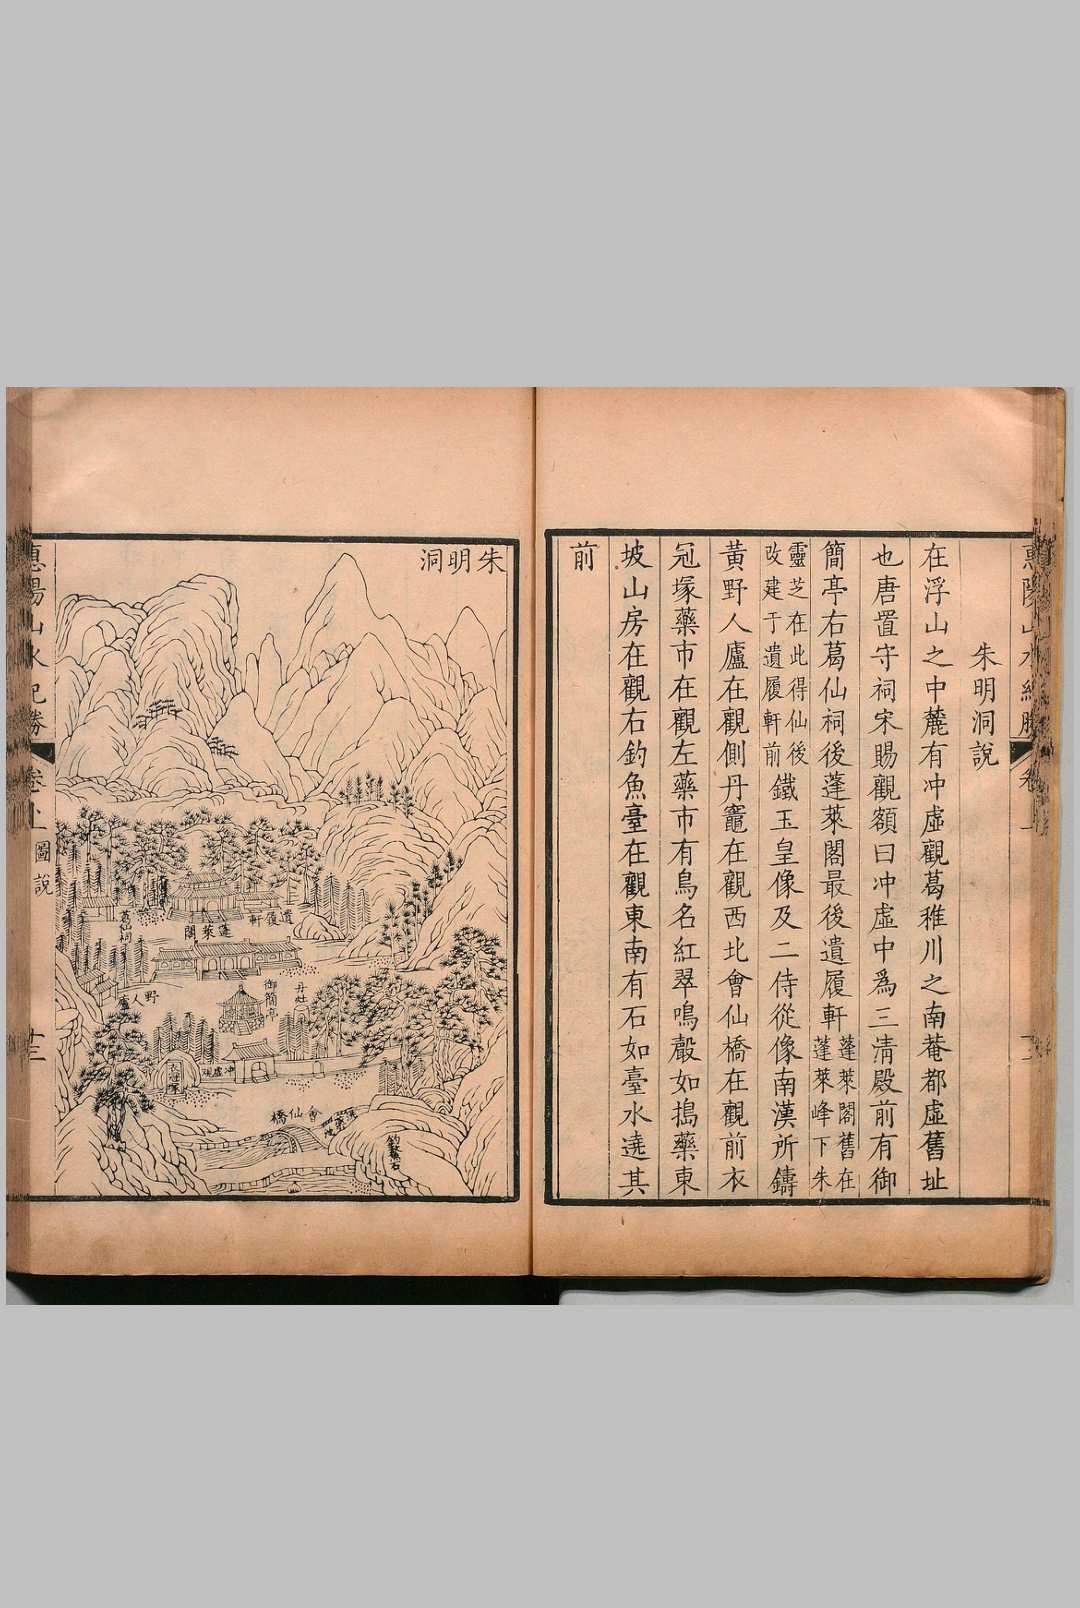 朱明洞說
在浮山之中麓有冲虛觀葛稚川之南菴都虛舊址
也唐置守祠宋賜觀額曰冲虛中爲三清殿前有御
簡亭右葛仙祠後蓬萊閣最後遺履軒蓬萊閣舊在
蓬萊峰下朱
靈芝在此得仙後
改建于遺履軒前鐵玉皇像及二侍從像南漢所鑄
黃野人廬在觀側丹竈在觀西北會仙橋在觀前衣
冠塚藥市在觀左藥市有鳥名紅翠鳴聲如搗藥東
坡山房在觀右釣魚臺在觀東南有石如臺水遶其
前
朱明洞
遺履軒
蓬萊閣
葛仙祠
丹灶
御簡亭
野人廬
冲虛觀
衣冠塚
會仙橋
惠陽山水紀勝
卷上
圖說
十三